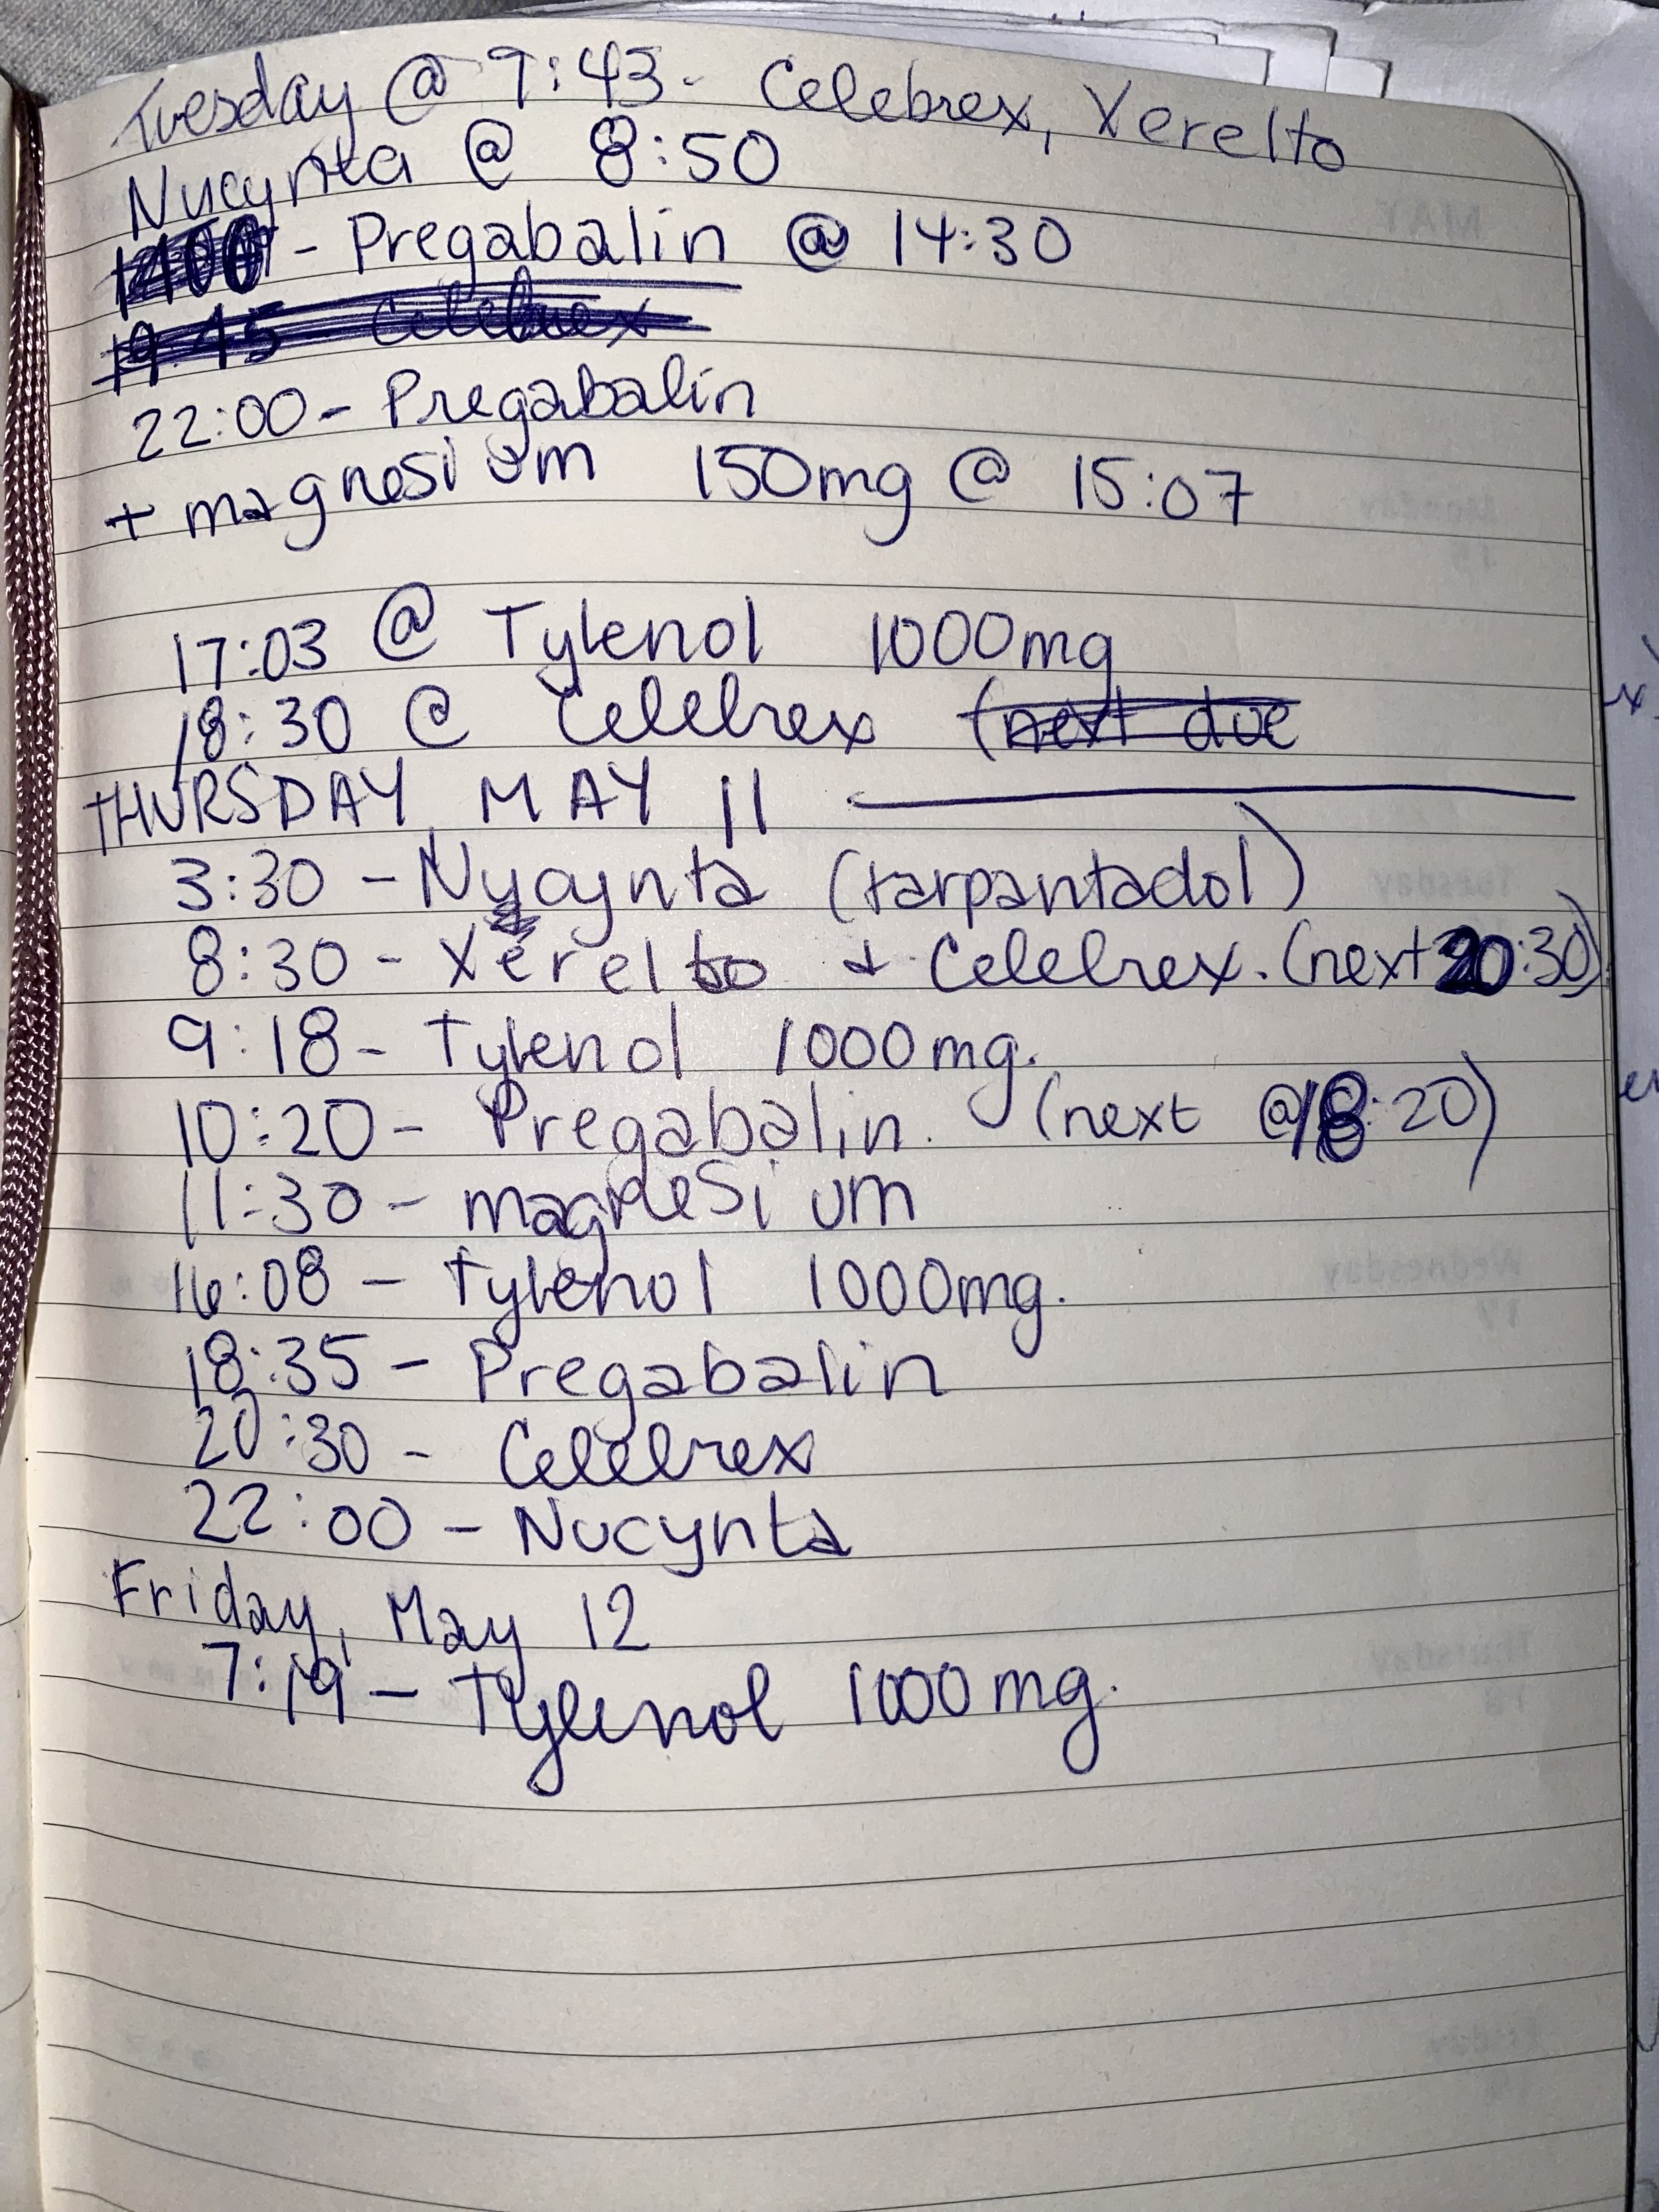 Tuesday @ 9:43 - Celebrex, Xerelto
Nucynta @ 8:50
1400 - Pregabalin @ 14:30
19:45 - Celebrex
22:00 - Pregabalin
+ magnesium 150mg @ 15:07
17:03 @ Tylenol 1000mg
18:30 @ Celebrex (next due
THURSDAY, MAY 11
3:30 - Nycynta (tarpantadol)
8:30 - Xerelto + Celebrex. (next 20:30)
9:18 - Tylenol 1000mg.
10:20 - Pregabalin. (next @18:20)
11:30 - magnesium
16:08 - Tylenol 1000mg.
18:35 - Pregabalin
20:30 - Celebrex
22:00 - Nucynta
Friday, May 12
7:19 - Tylenol 1000mg.
MAY
Monday
15
Tuesday
Wednesday
17
Thursday
18
Friday